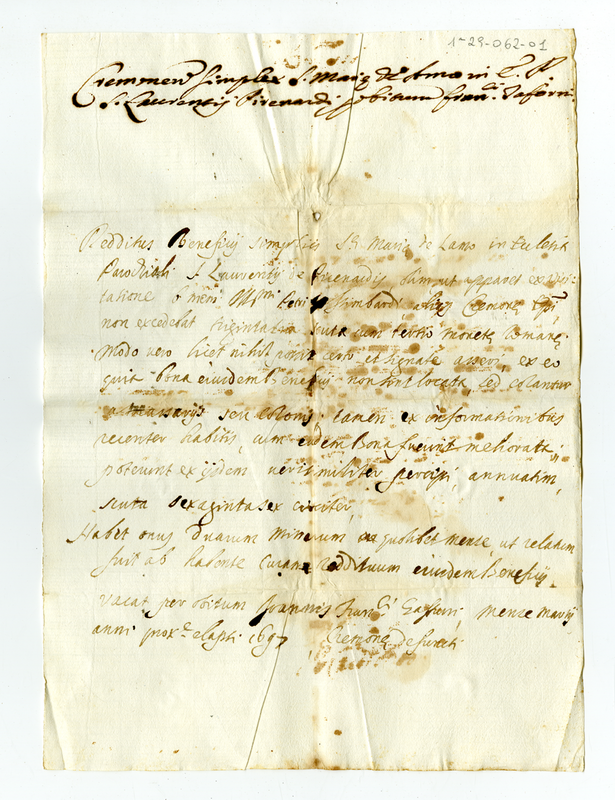 1-29-062-01
Cremonen. simplex S. Mariæ de Amo in
S. Laurentij Pirenardi p obitum Fran.
Redditus Beneficij simplicis S. Mariæ de Lamo in Ecclesia
Parochiali S. Laurentij de Pirenardis olim ut apparet ex visi-
tatione b. mem. Ill.mi Petri Cremonę Epi
non excedebat triginta scuta cum tertio monetę Romanę.
Modo vero licet nihil possit certo, et signate asseri, ex eo
quia Bona eiusdem Beneficij non sint locata, sed colantur
a Massarijs seu Colonis tamen ex informationibus
recenter habitis, cum eadem Bona fuerint meliorata,
poterunt ex ijsdem verisimiliter percipi annuatim,
scuta sexaginta sex circiter,
Habet onus duarum Missarum quolibet mense, ut relatum
fuit ab habente Curam reddituum eiusdem Beneficij,
Vacat per obitum Joannis Fran.ci mense Martij
anni prox.e elapsi 1697 Cremonę